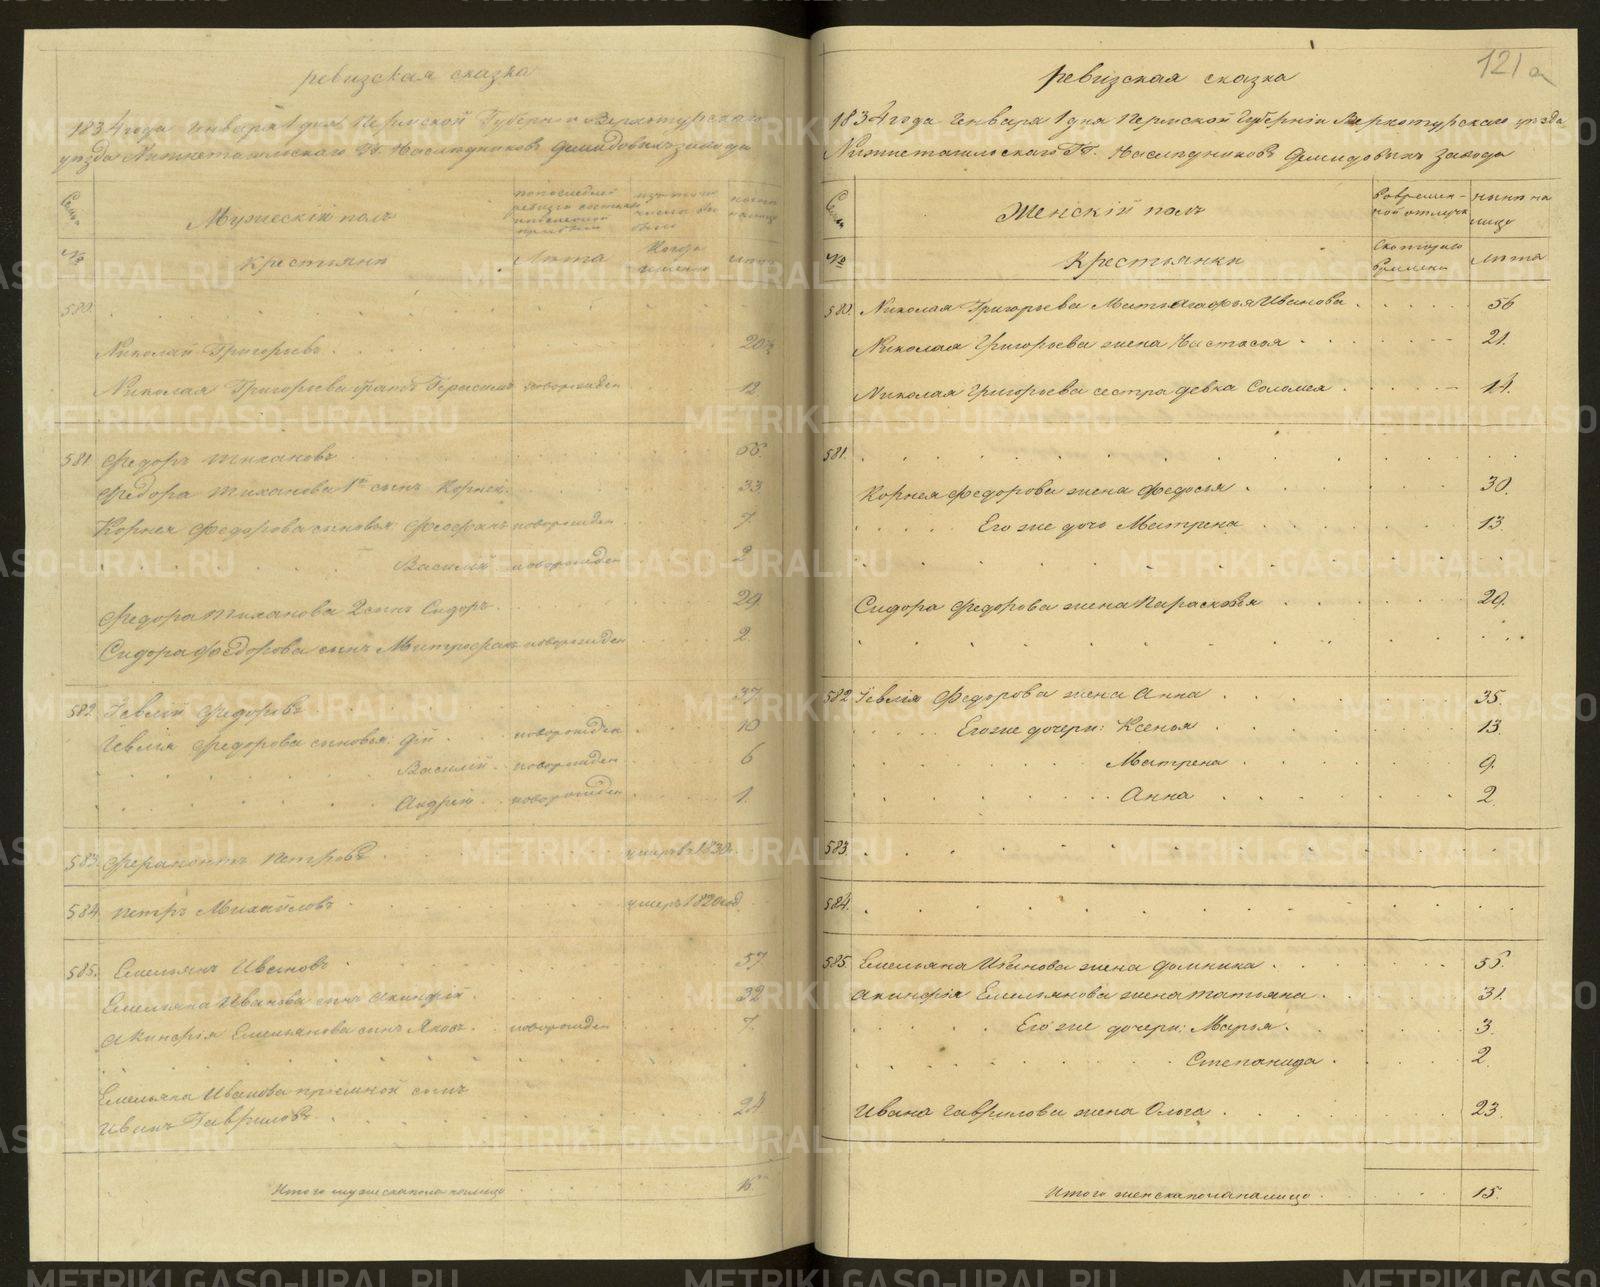 ревизская сказка
1834 года Генваря 1 дня Пермской Губернии Верхотурскаго
уезда Нижнетагильскаго Гг. Наследниковъ Демидовыхъ завода
Семьи
Мужескій полъ
по последней
ревизіи состояло
изъ того
числа вы
было
ныне
на лицо
№
Крестьяне
Лета
Когда
именно
Лета
580.
Николай Григорьевъ 20½
Николая Григорьева братъ Герасимъ новорожден 12
581 Федоръ Тихановъ 55.
Федора Тиханова 1й сынъ Корней 33
Корнея Федорова сыновья: Феофанъ новорожден 7.
Василій новорожден 2
Федора Тиханова 2 сынъ Сидоръ 29
Сидора Федорова сынъ Митрофанъ новорожден 2
582 Іевлій Федоровъ 37
Іевлія Федорова сыновья: новорожден 10
Василій новорожден 6
Андрей новорожден 1.
583. Ферапонтъ Петровъ умеръ въ 1830
584. Петръ Михайловъ умеръ 1820 год
585. Емельянъ Ивановъ 57
Емельяна Иванова сынъ Акинфій 32
Акинфія Емельянова сынъ Яковъ новорожден 7.
Емельяна Иванова приемной сынъ
Иванъ Гавриловъ 24
Итого мужеска пола налицо 15
121а
ревизская сказка
1834 года Генваря 1 дня Пермской Губерніи Верхотурскаго уезда
Нижнетагильскаго Гг. Наследниковъ Демидовыхъ завода
Семьи
Женскій полъ
Во времен-
ной отлучке
ныне на
лицо
№
Крестьянки
Съ котораго
времени
Лета
580. Николая Григорьева Мать Агафья Иванова 56
Николая Григорьева жена Настасья 21.
Николая Григорьева сестра девка Соломея 14.
581.
Корнея Федорова жена Федосья 30.
Его же дочь Матрена 13.
Сидора Федорова жена Парасковья 29.
582 Іевлія Федорова жена Анна 35.
Его же дочери: Ксенья 13.
Матрена 9.
Анна 2
583.
584.
585. Емельяна Иванова жена Домника 55.
Акинфія Емельянова жена Татьяна 31.
Его же дочери: Марья 3.
Степанида 2.
Ивана Гаврилова жена Ольга 23.
Итого женска пола налицо 15.
METRIKI.GASO-URAL.RU